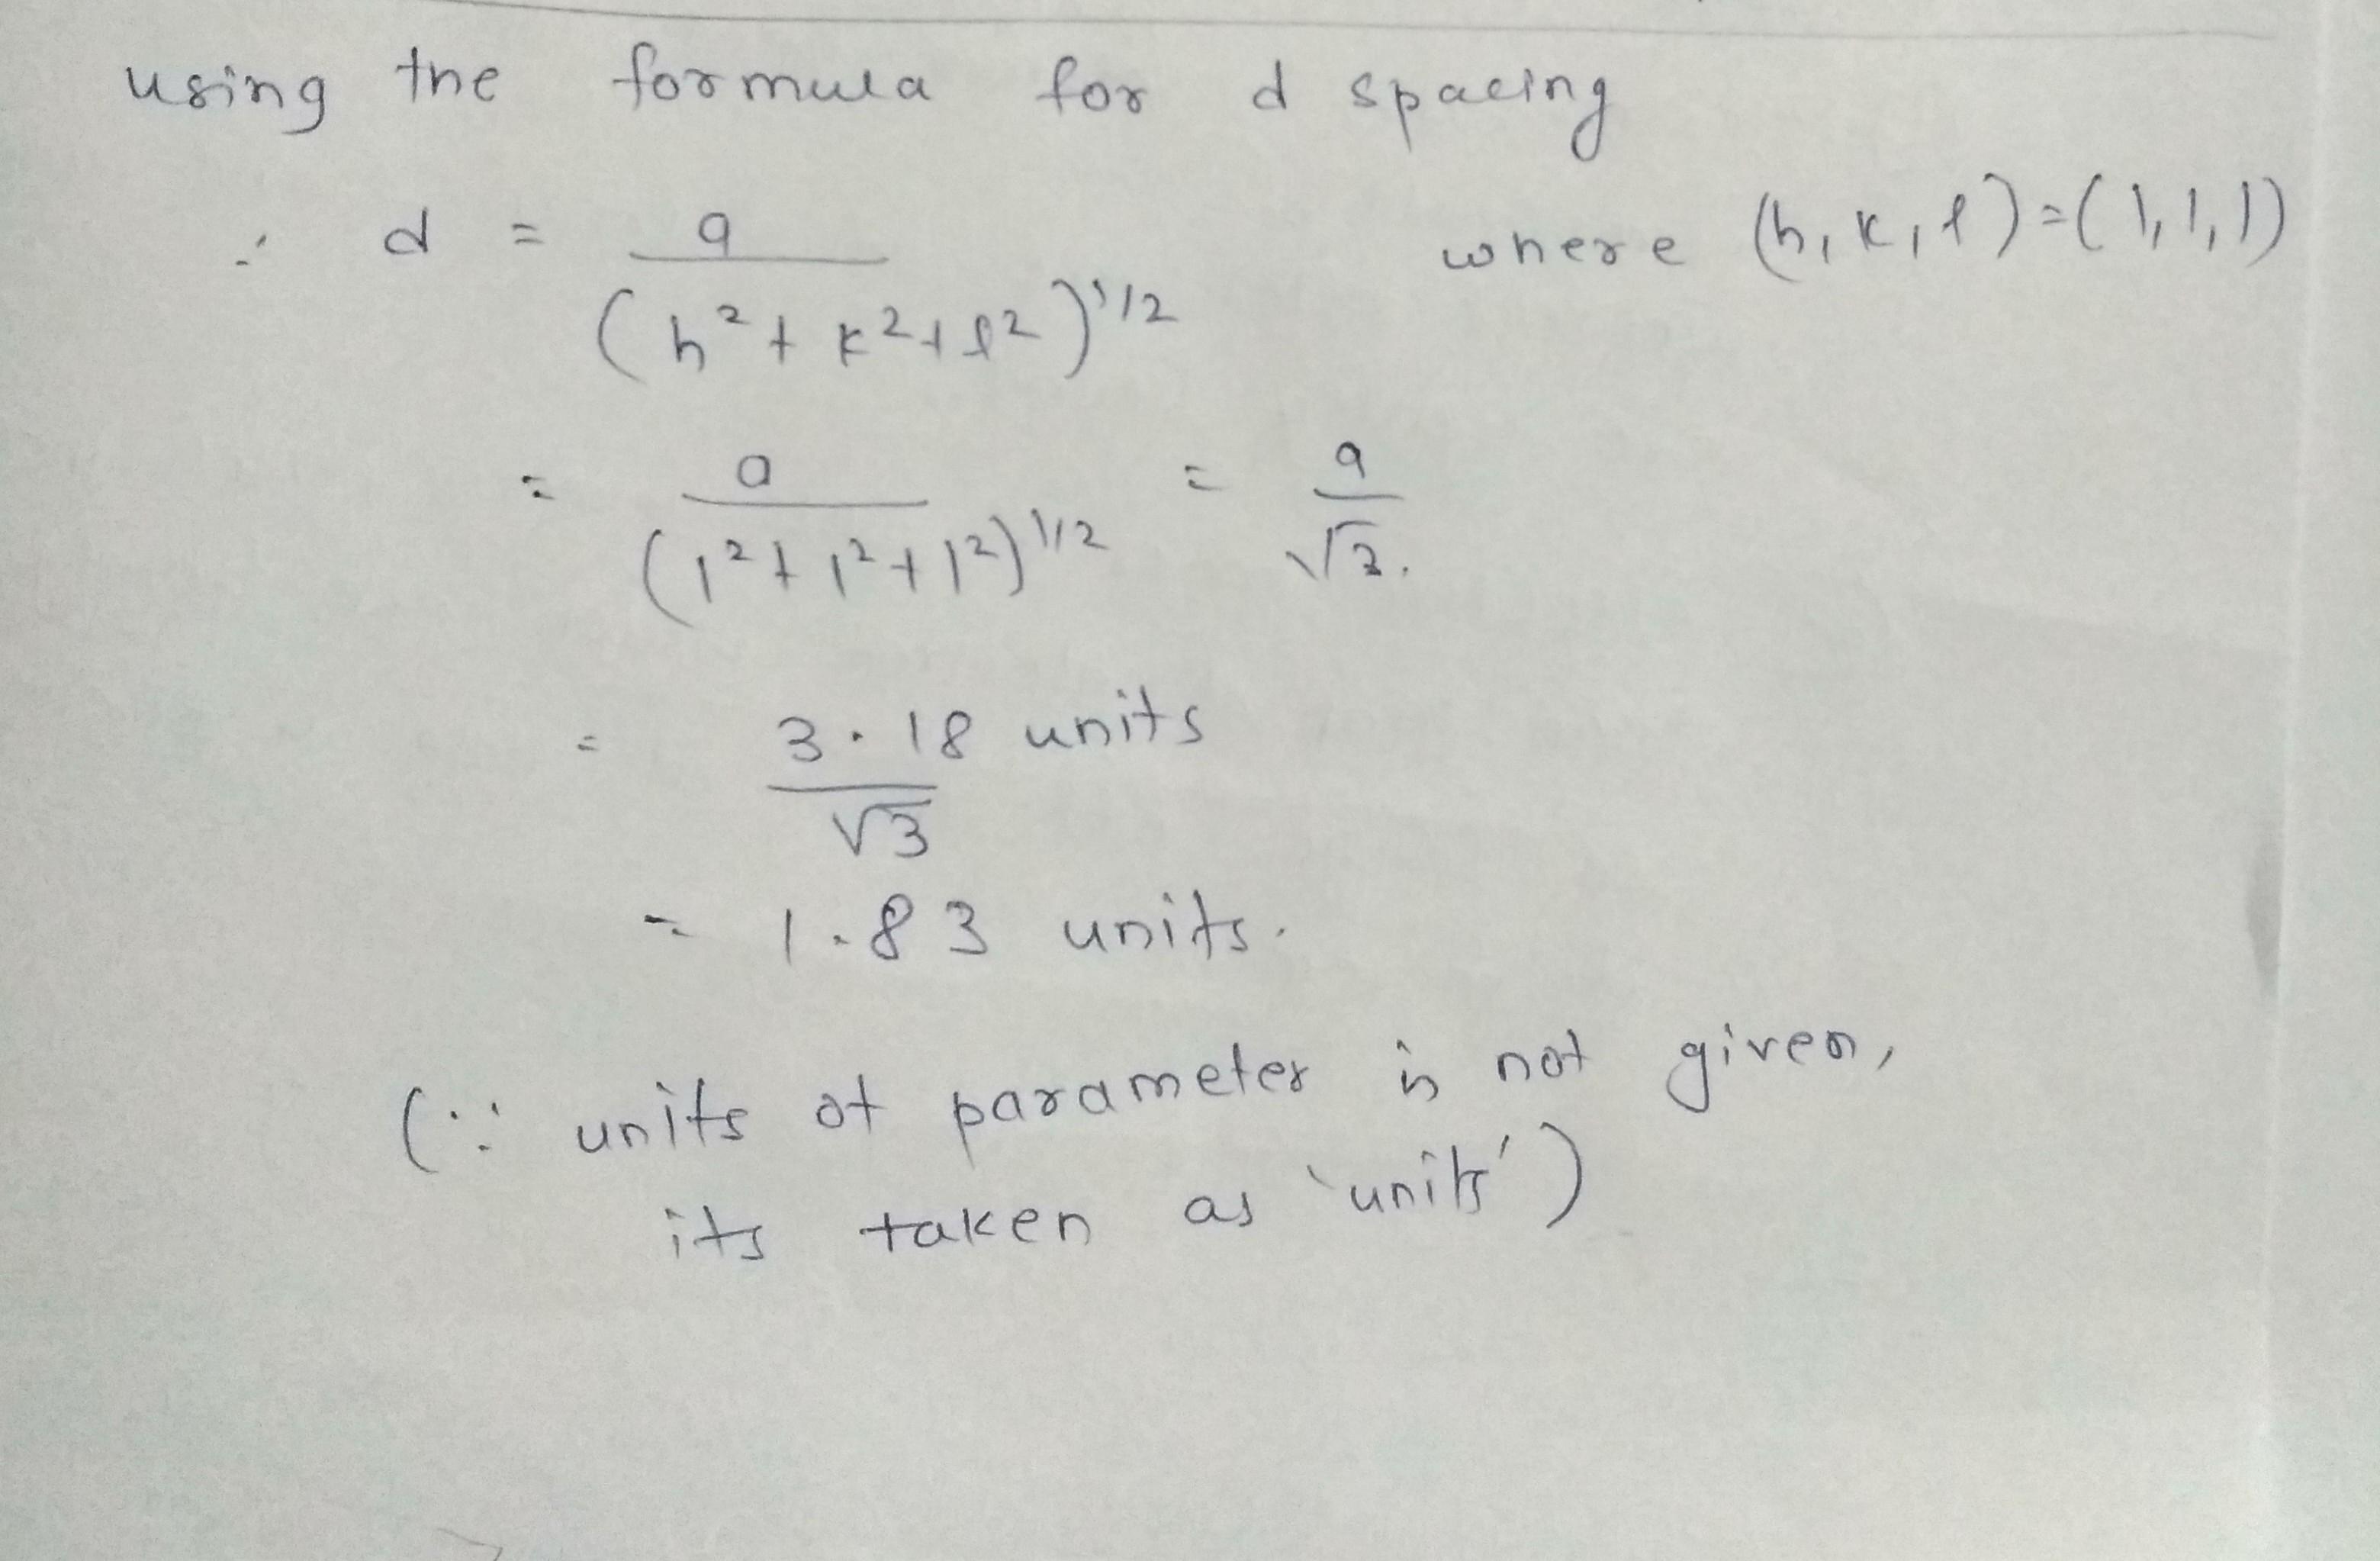 using the formula for d spacing
∴ d = a / (h²+k²+l²)^1/2 where (h,k,l)=(1,1,1)
= a / (1²+1²+1²)^1/2 = a / √3.
= 3.18 units / √3
= 1.83 units.
(∵ units of parameter is not given,
its taken as 'units')